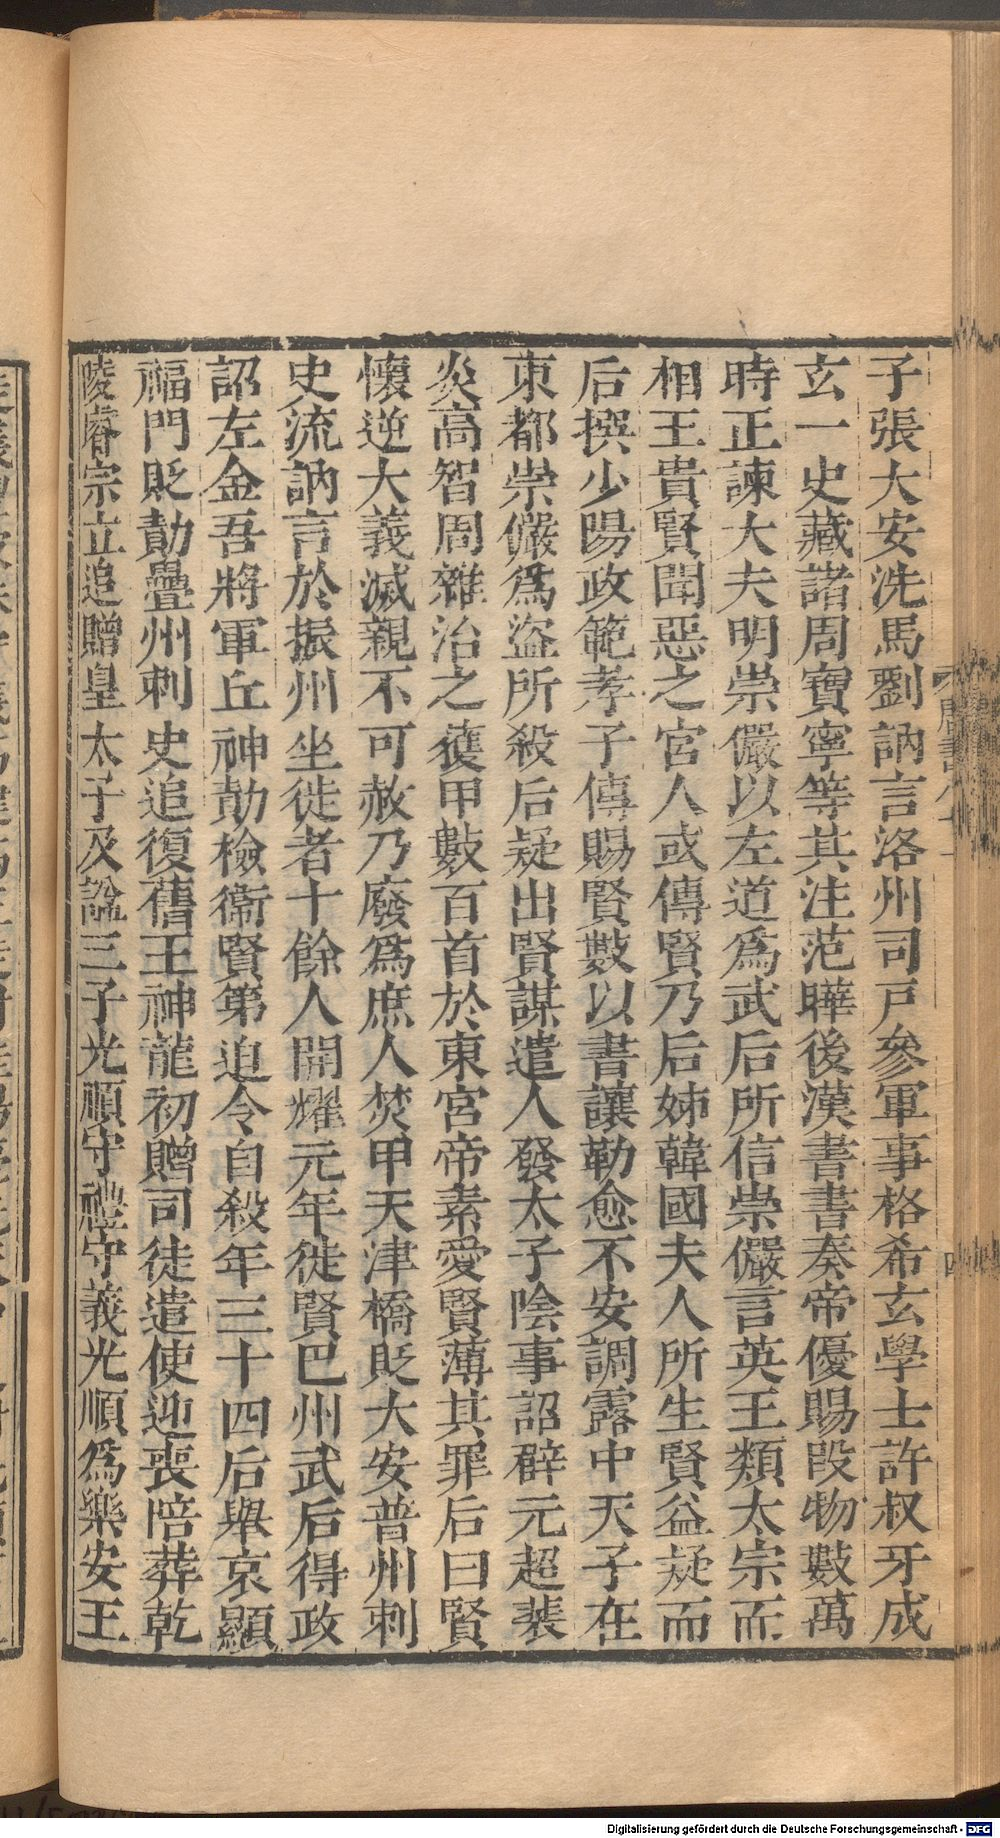 子張大安洗馬劉訥言洛州司戶參軍事格希玄學士許叔牙成
玄一史藏諸周寶寧等其注范曄後漢書書奏帝優賜段物數萬
時正諫大夫明崇儼以左道爲武后所信崇儼言英王類太宗而
相王貴賢聞惡之宮人或傳賢乃后姊韓國夫人所生賢益疑而
后撰少陽政範孝子傳賜賢數以書讓勒愈不安調露中天子在
東都崇儼爲盜所殺后疑出賢謀遣人發太子陰事詔薛元超裴
炎高智周雜治之獲甲數百首於東宮帝素愛賢薄其罪后曰賢
懷逆大義滅親不可赦乃廢爲庶人焚甲天津橋貶大安普州刺
史流訥言於振州坐徙者十餘人開耀元年徙賢巴州武后得政
詔左金吾將軍丘神勣檢衞賢第迫令自殺年三十四后舉哀顯
福門貶勣疊州刺史追復舊王神龍初贈司徒遣使迎喪陪葬乾
陵睿宗立追贈皇太子及諡三子光順守禮守義光順爲樂安王
四
Digitalisierung gefördert durch die Deutsche Forschungsgemeinschaft - DFG